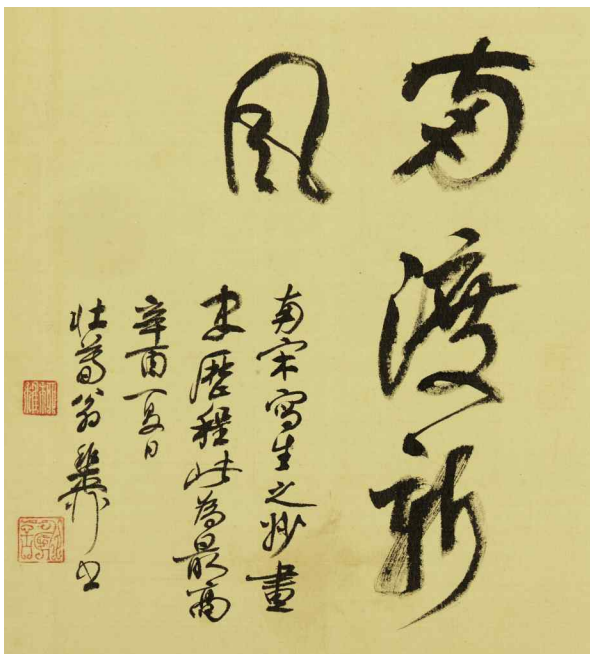 南渡新
風
南宋寫生之妙畫
史歷程此為最高
辛酉夏日
壯暮翁稚柳書